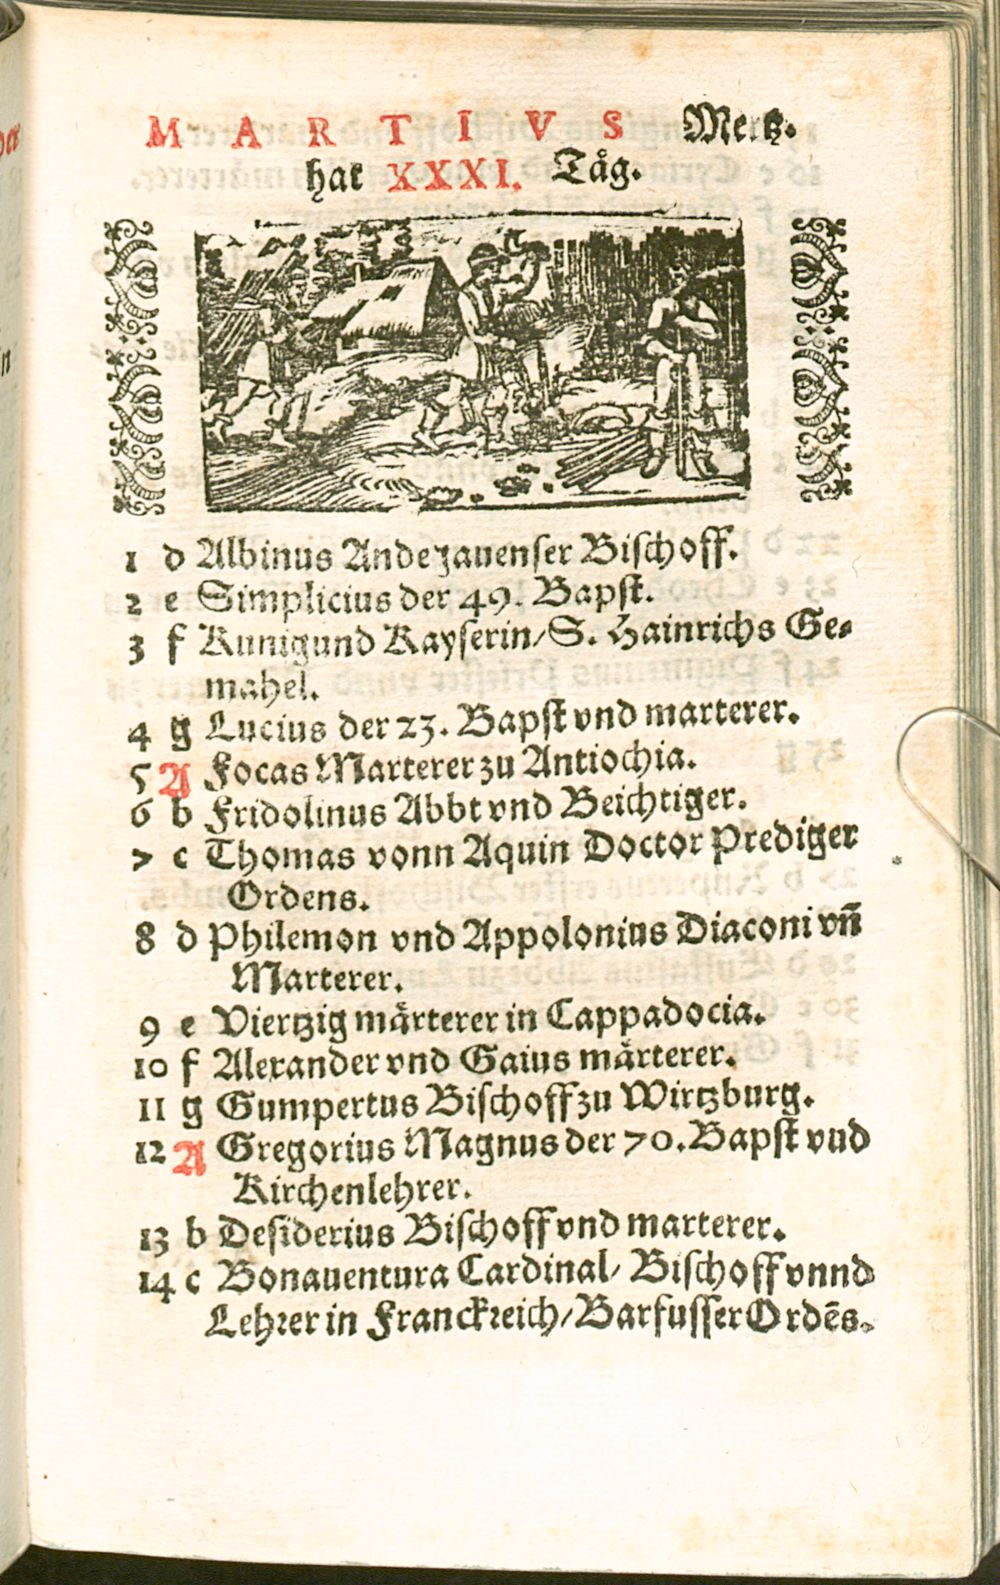 MARTIVS Mertz.
hat XXXI. Tåg.
1 d Albinus Andegauenser Bischoff.
2 e Simplicius der 49. Bapst.
3 f Kunigund Kayserin/S. Hainrichs Ge-
mahel.
4 g Lucius der 23. Bapst vnd marterer.
5 A Focas Marterer zu Antiochia.
6 b Fridolinus Abbt vnd Beichtiger.
7 c Thomas vonn Aquin Doctor Prediger
Ordens.
8 d Philemon vnd Appolonius Diaconi vn̄
Marterer.
9 e Viertzig mårterer in Cappadocia.
10 f Alexander vnd Gaius mårterer.
11 g Gumpertus Bischoff zu Wirtzburg.
12 A Gregorius Magnus der 70. Bapst vud
Kirchenlehrer.
13 b Desiderius Bischoff vnd marterer.
14 c Bonauentura Cardinal/ Bischoff vnnd
Lehrer in Franckreich/Barfusser Ordēs.